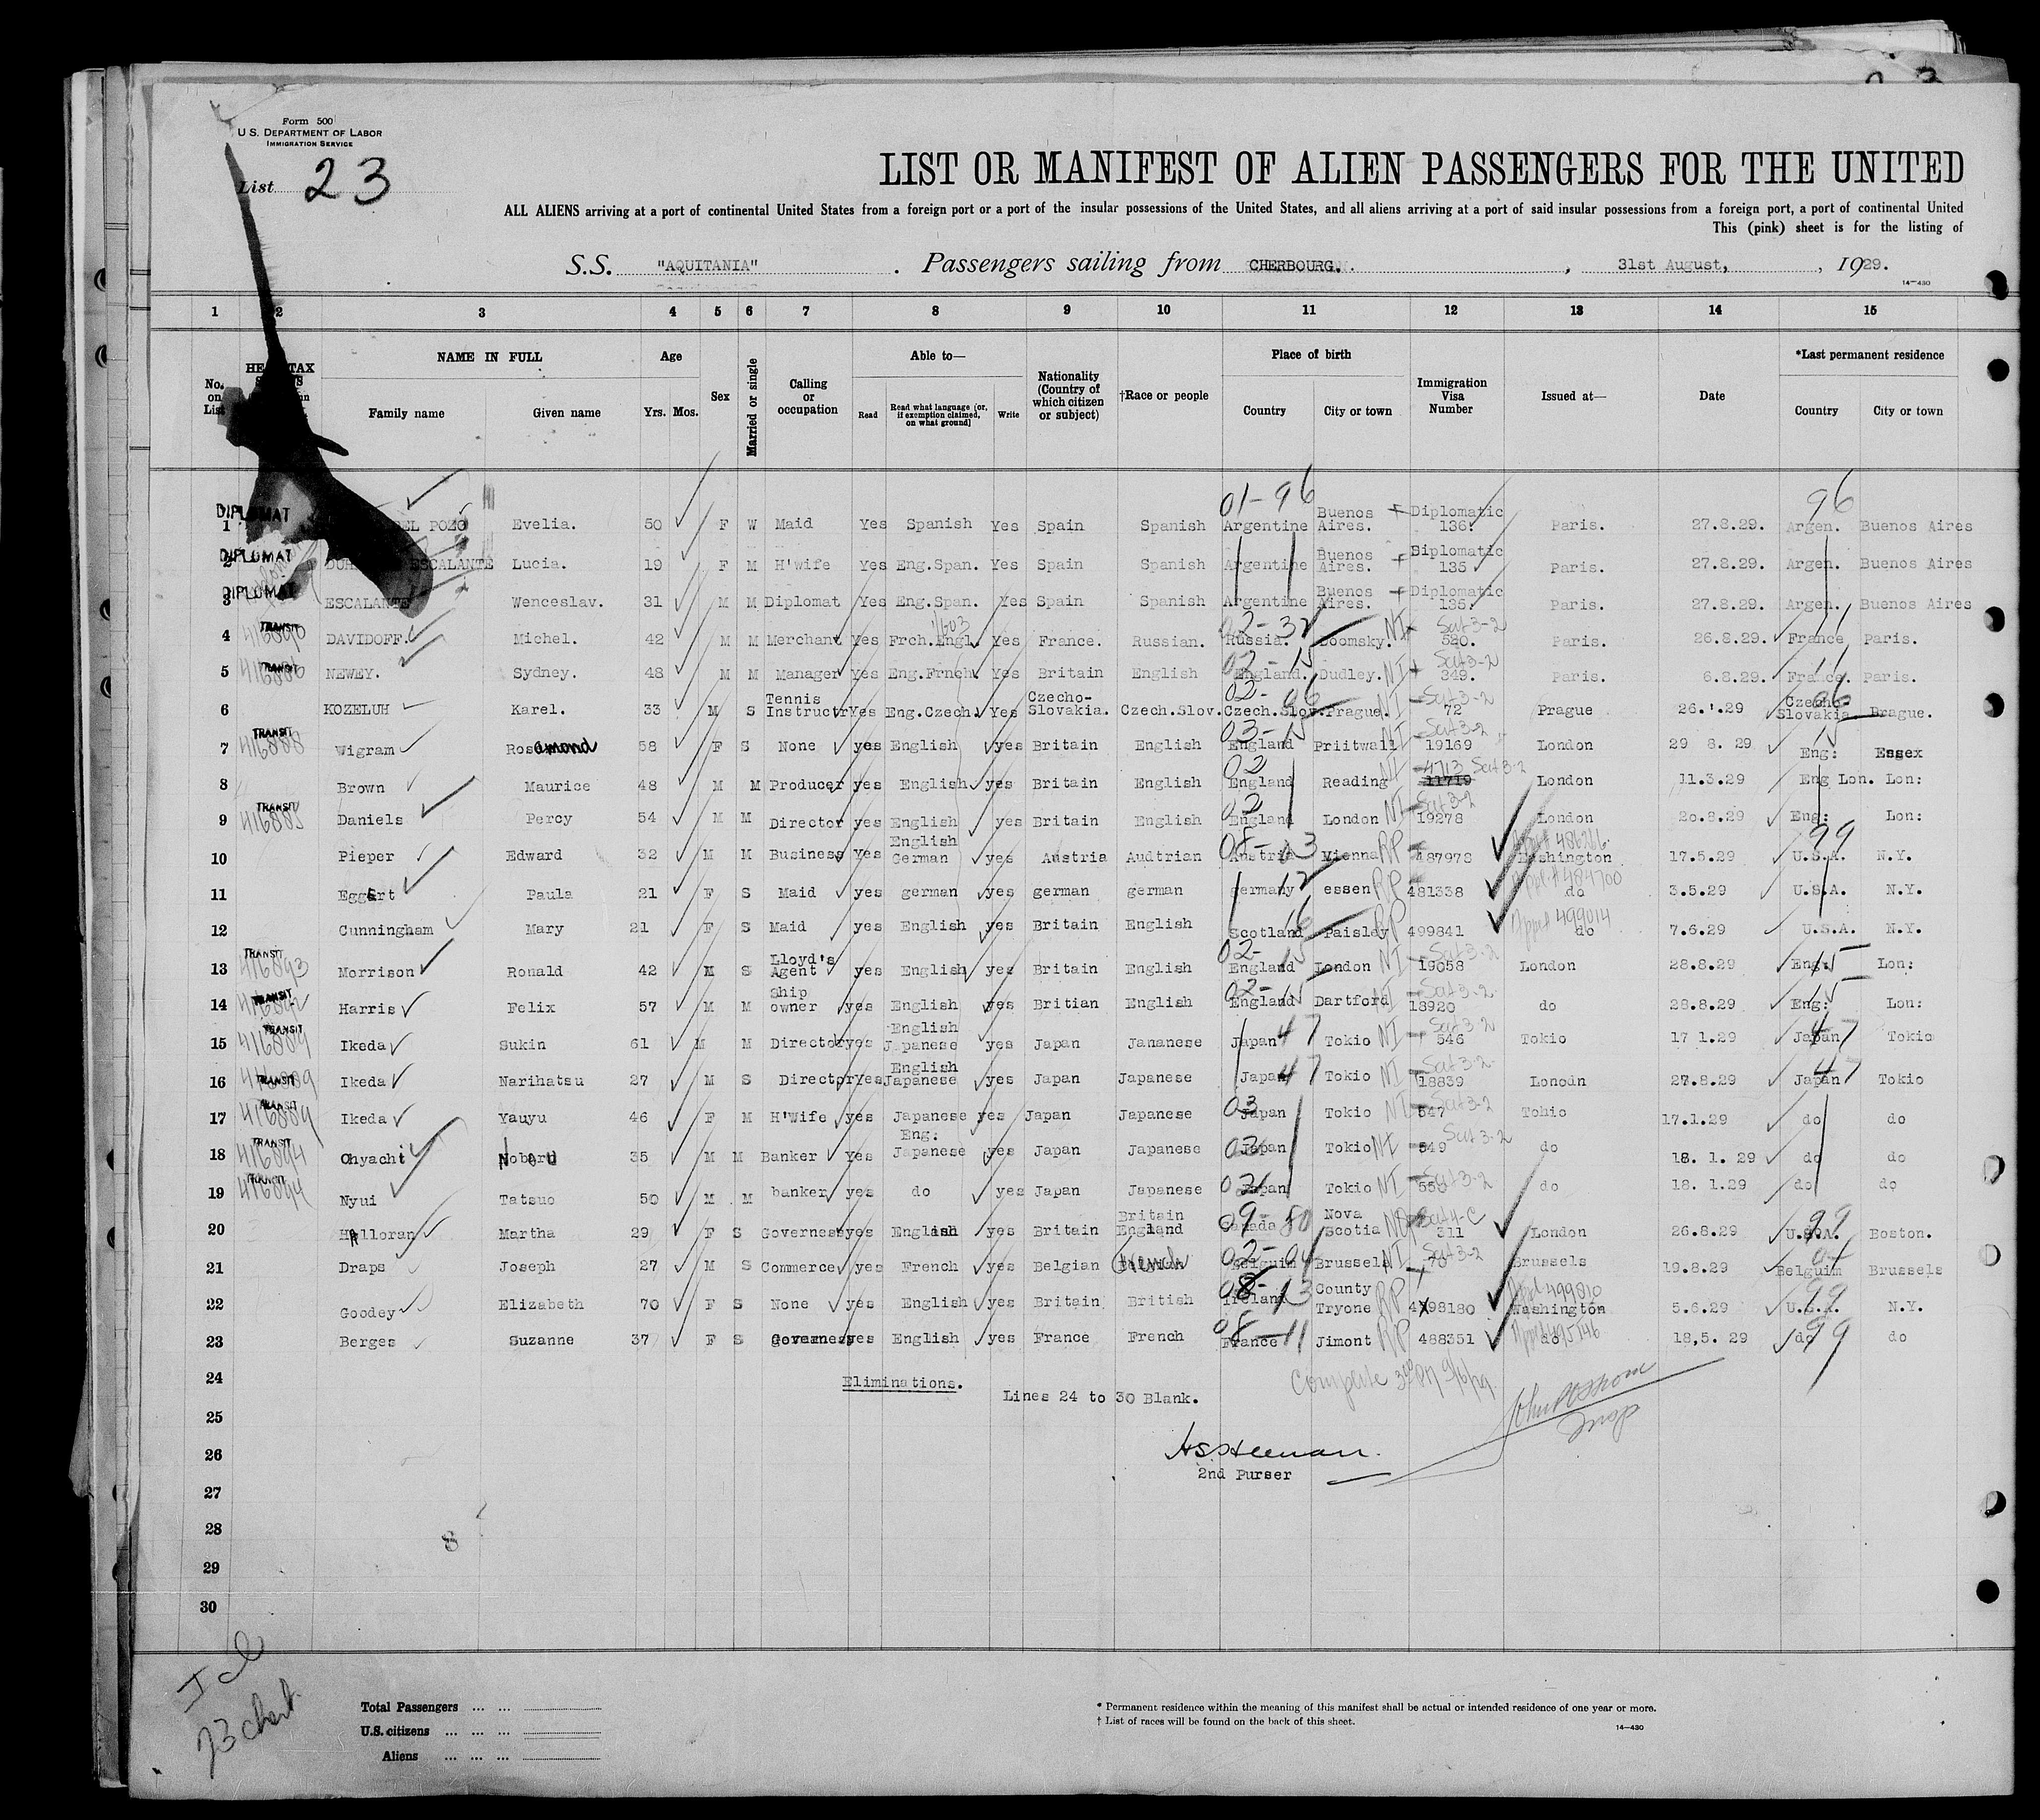 Form 500
U. S. DEPARTMENT OF LABOR
IMMIGRATION SERVICE
List 23
LIST OR MANIFEST OF ALIEN PASSENGERS FOR THE UNITED
ALL ALIENS arriving at a port of continental United States from a foreign port or a port of the insular possessions of the United States, and all aliens arriving at a port of said insular possessions from a foreign port, a port of continental United
This (pink) sheet is for the listing of
S.S. "AQUITANIA" . Passengers sailing from CHERBOURG. , 31st August, , 1929.
14—430
1 2 3 4 5 6 7 8 9 10 11 12 13 14 15
No. on List
NAME IN FULL Family name Given name
Age Yrs. Mos.
Sex
Married or single
Calling or occupation
Able to— Read Read what language (or, if exemption claimed, on what ground) Write
Nationality (Country of which citizen or subject)
†Race or people
Place of birth Country City or town
Immigration Visa Number
Issued at—
Date
*Last permanent residence Country City or town
1 DIPLOMAT DEL POZO Evelia. 50 F W Maid Yes Spanish Yes Spain Spanish 01-96 Argentine Buenos Aires. Diplomatic 136. Paris. 27.8.29. 96 Argen. Buenos Aires
2 DIPLOMAT ESCALANTE Lucia. 19 F M H'wife Yes Eng.Span. Yes Spain Spanish Argentine Buenos Aires. Diplomatic 135 Paris. 27.8.29. Argen. Buenos Aires
3 DIPLOMAT ESCALANTE Wenceslav. 31 M M Diplomat Yes Eng.Span. Yes Spain Spanish Argentine Buenos Aires. Diplomatic 135. Paris. 27.8.29. Argen. Buenos Aires
4 TRANSIT 416890 DAVIDOFF. Michel. 42 M M Merchant Yes Frch.Engl. Yes France. Russian. 02-32 Russia. Doomsky. NI Sect 3-2 580. Paris. 26.8.29. France Paris.
5 TRANSIT 416886 NEWEY. Sydney. 48 M M Manager Yes Eng.Frnch. Yes Britain English 02-15 England. Dudley. NI Sect 3-2 349. Paris. 6.8.29. France. Paris.
6 KOZELUH Karel. 33 M S Tennis Instructr Yes Eng.Czech. Yes Czecho-Slovakia. Czech.Slov. 02-06 Czech.Slov. Prague. NI Sect 3-2 72 Prague 26. .29 Czecho-Slovakia Prague.
7 TRANSIT 416888 Wigram Rosamond 58 F S None yes English yes Britain English 03-15 England Priitwall NI Sect 3-2 19169 London 29 8. 29 Eng: Essex
8 Brown Maurice 48 M M Producer yes English yes Britain English 02 England Reading NI 4713 Sect 3-2 11719 London 11.3.29 Eng Lon. Lon:
9 TRANSIT Daniels Percy 54 M M Director yes English yes Britain English 02 England London NI Sect 3-2 19278 London 20.8.29 Eng: Lon:
10 Pieper Edward 32 M M Business Yes English German yes Austria Audtrian 08-03 Austria Vienna RP 487978 Washington 17.5.29 99 U.S.A. N.Y.
11 Eggert Paula 21 F S Maid yes german yes german german 12 germany essen RP 481338 do 3.5.29 U.S.A. N.Y.
12 Cunningham Mary 21 F S Maid yes English yes Britain English 16 Scotland Paisley RP 499841 499014 do 7.6.29 U.S.A. N.Y.
13 TRANSIT 416893 Morrison Ronald 42 M S Lloyd's Agent yes English yes Britain English 02-15 England London NI Sect 3-2 19058 London 28.8.29 Eng: 15 Lon:
14 TRANSIT 416892 Harris Felix 57 M M Ship owner yes English yes Britian English 02-15 England Dartford NI Sect 3-2 18920 do 28.8.29 Eng: 15 Lon:
15 TRANSIT 416889 Ikeda Sukin 61 M M Director yes English Japanese yes Japan Jananese Japan 47 Tokio NI Sect 3-2 546 Tokio 17 1.29 Japan 47 Tokio
16 TRANSIT 416889 Ikeda Narihatsu 27 M S Director Yes English Japanese yes Japan Japanese Japan 47 Tokio NI Sect 3-2 18839 Lonodn 27.8.29 Japan 47 Tokio
17 TRANSIT 416889 Ikeda Yauyu 46 F M H'Wife yes Japanese yes Japan Japanese 03 Japan Tokio NI Sect 3-2 547 Tohio 17.1.29 do do
18 TRANSIT 416894 Ohyachi 35 M M Banker Yes Eng: Japanese yes Japan Japanese 02 Japan Tokio NI Sect 3-2 549 do 18. 1. 29 do do
19 TRANSIT 416894 Nyui Tatsuo 50 M M banker yes do yes Japan Japanese 02 Japan Tokio NI Sect 3-2 550 do 18. 1.29 do do
20 Halloran Martha 29 F S Governess yes English yes Britain Britain England 09-80 Canada Nova Scotia Sect 4-C 311 London 26.8.29 99 U.S.A. Boston.
21 Draps Joseph 27 M S Commerce yes French yes Belgian French 02-04 Belguim Brussels NI Sect 3-2 70 Brussels 19.8.29 Belguim Brussels
22 Goodey Elizabeth 70 F S None yes English yes Britain British 08-13 Ireland County Tryone RP 498180 499810 Washington 5.6.29 99 U.S.A. N.Y.
23 Berges Suzanne 37 F S Governess yes English yes France French 08-11 France Jimont RP 488351 do 18,5. 29 do 99 do
24 Eliminations.
Lines 24 to 30 Blank.
25
26
2nd Purser
27
28
29
30
Total Passengers ... ...
U.S. citizens ... ... ...
Aliens ... ... ...
* Permanent residence within the meaning of this manifest shall be actual or intended residence of one year or more.
† List of races will be found on the back of this sheet.
14—430